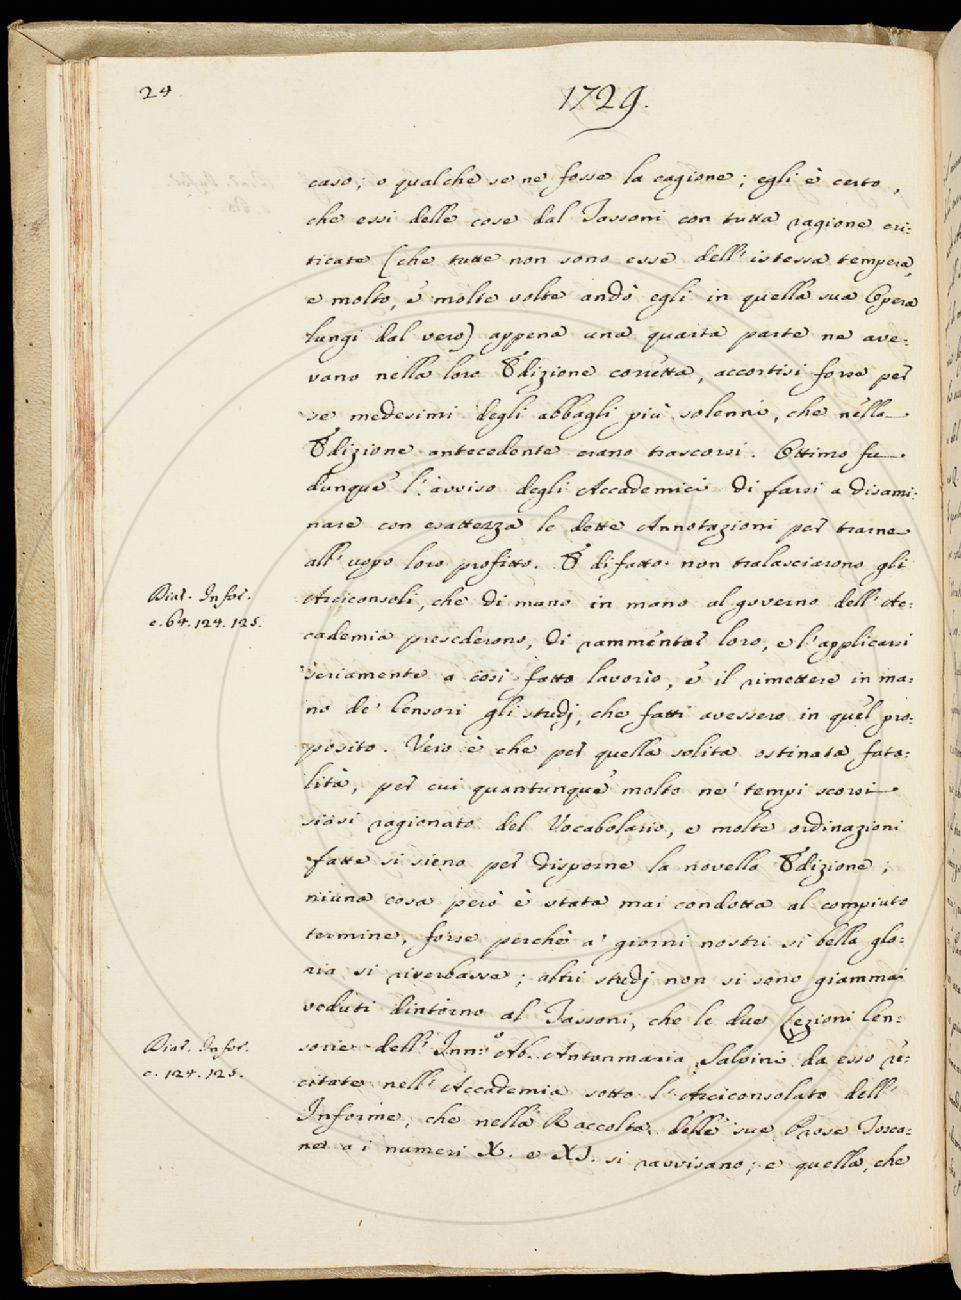 24
1729.
caso; o qualche se ne fosse la cagione; egli è certo,
che essi delle cose dal Tassoni con tutta ragione cri:
ticate (che tutte non sono esse dell'istessa tempera,
e molto, e molte volte andò egli in quella sua Opera
lungi dal vero) appena una quarta parte ne ave:
vano nella loro Edizione corretta, accortisi forse per
se medesimi degli abbagli più solenni, che nella
Edizione antecedente erano trascorsi. Ottimo fu
dunque l'avviso degli Accademici di farsi a disami:
nare con esattezza le dette Annotazioni per trarne
all'uopo loro profitto. E difatto non tralasciarono gli
Diar. Infor.
c. 64. 124. 125.
Arciconsoli, che di mano in mano al governo dell'Ac:
cademia presederono, di rammentar loro, e l'applicarsi
seriamente a così fatto lavorio, e il rimettere in ma:
no de' Censori gli studj, che fatti avessero in quel pro:
posito. Vero è che per quella solita ostinata fata:
lità, per cui quantunque molto ne' tempi scorsi
siasi ragionato del Vocabolario, e molte ordinazioni
fatte si sieno per disporne la novella Edizione;
niuna cosa però è stata mai condotta al compiuto
termine, forse perchè a' giorni nostri si bella glo:
ria si riserbasse; altri studj non si sono giammai
veduti dintorno al Tassoni, che le due Lezioni Cen:
Diar. Infor.
c. 124. 125.
sorie dell'Inn.º Ab. Antonmaria Salvini da esso re:
citate nell'Accademia sotto l'Arciconsolato dell'
Informe, che nella Raccolta delle sue Prose Tosca:
ne a i numeri X. e XI. si ravvisano; e quella, che